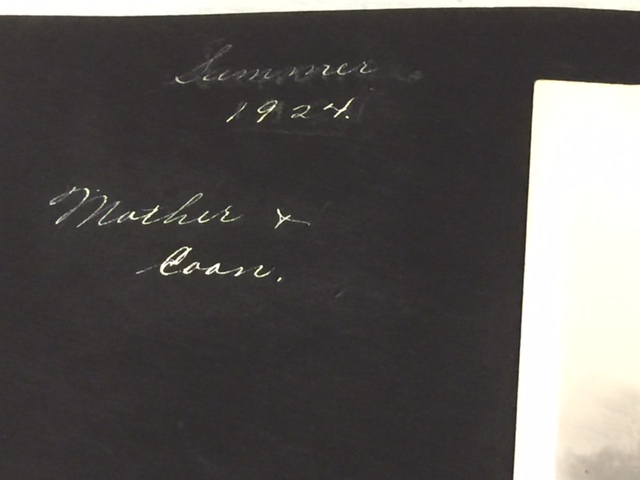 Summer
1924.
Mother &
Coan.